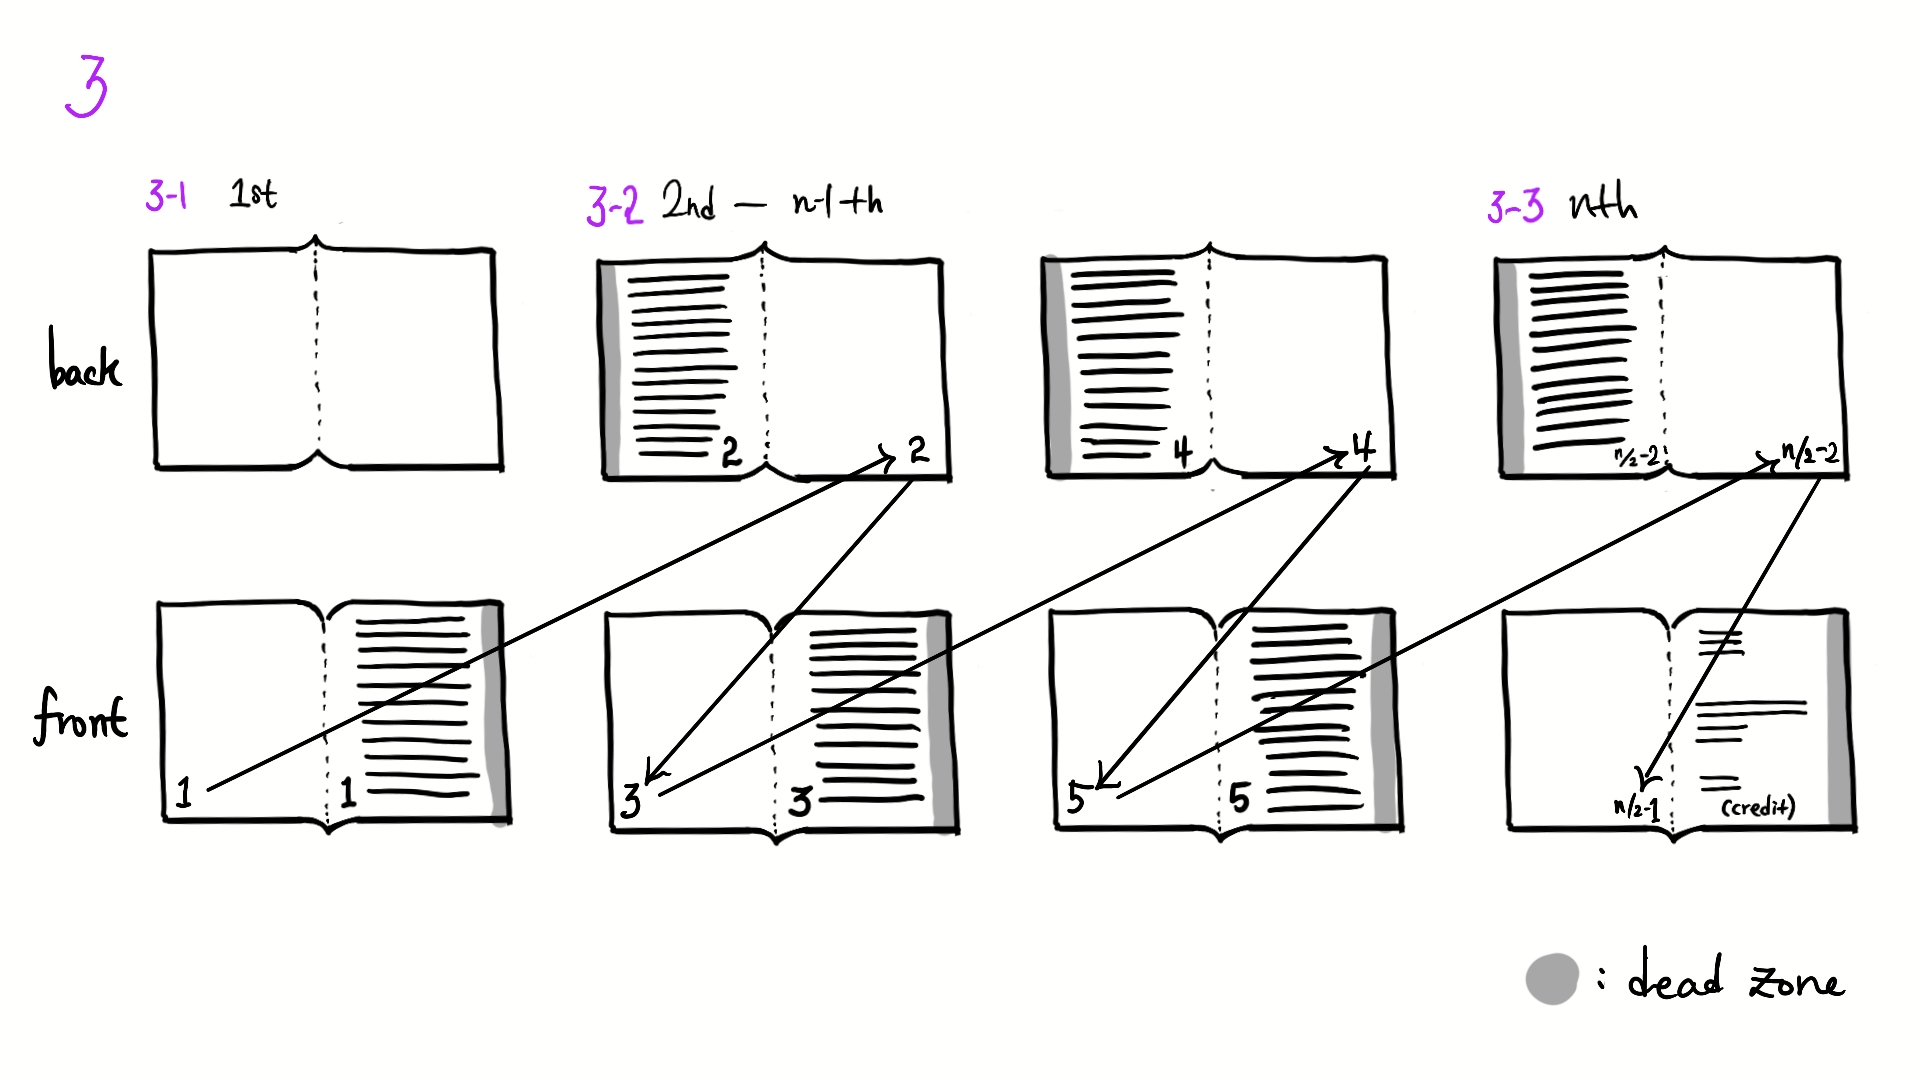 3
3-1 1st
3-2 2nd — n-1th
3-3 nth
back
2 2
4 4
n/2-2 n/2-2
front
1 1
3 3
5 5
n/2-1 (credit)
: dead zone